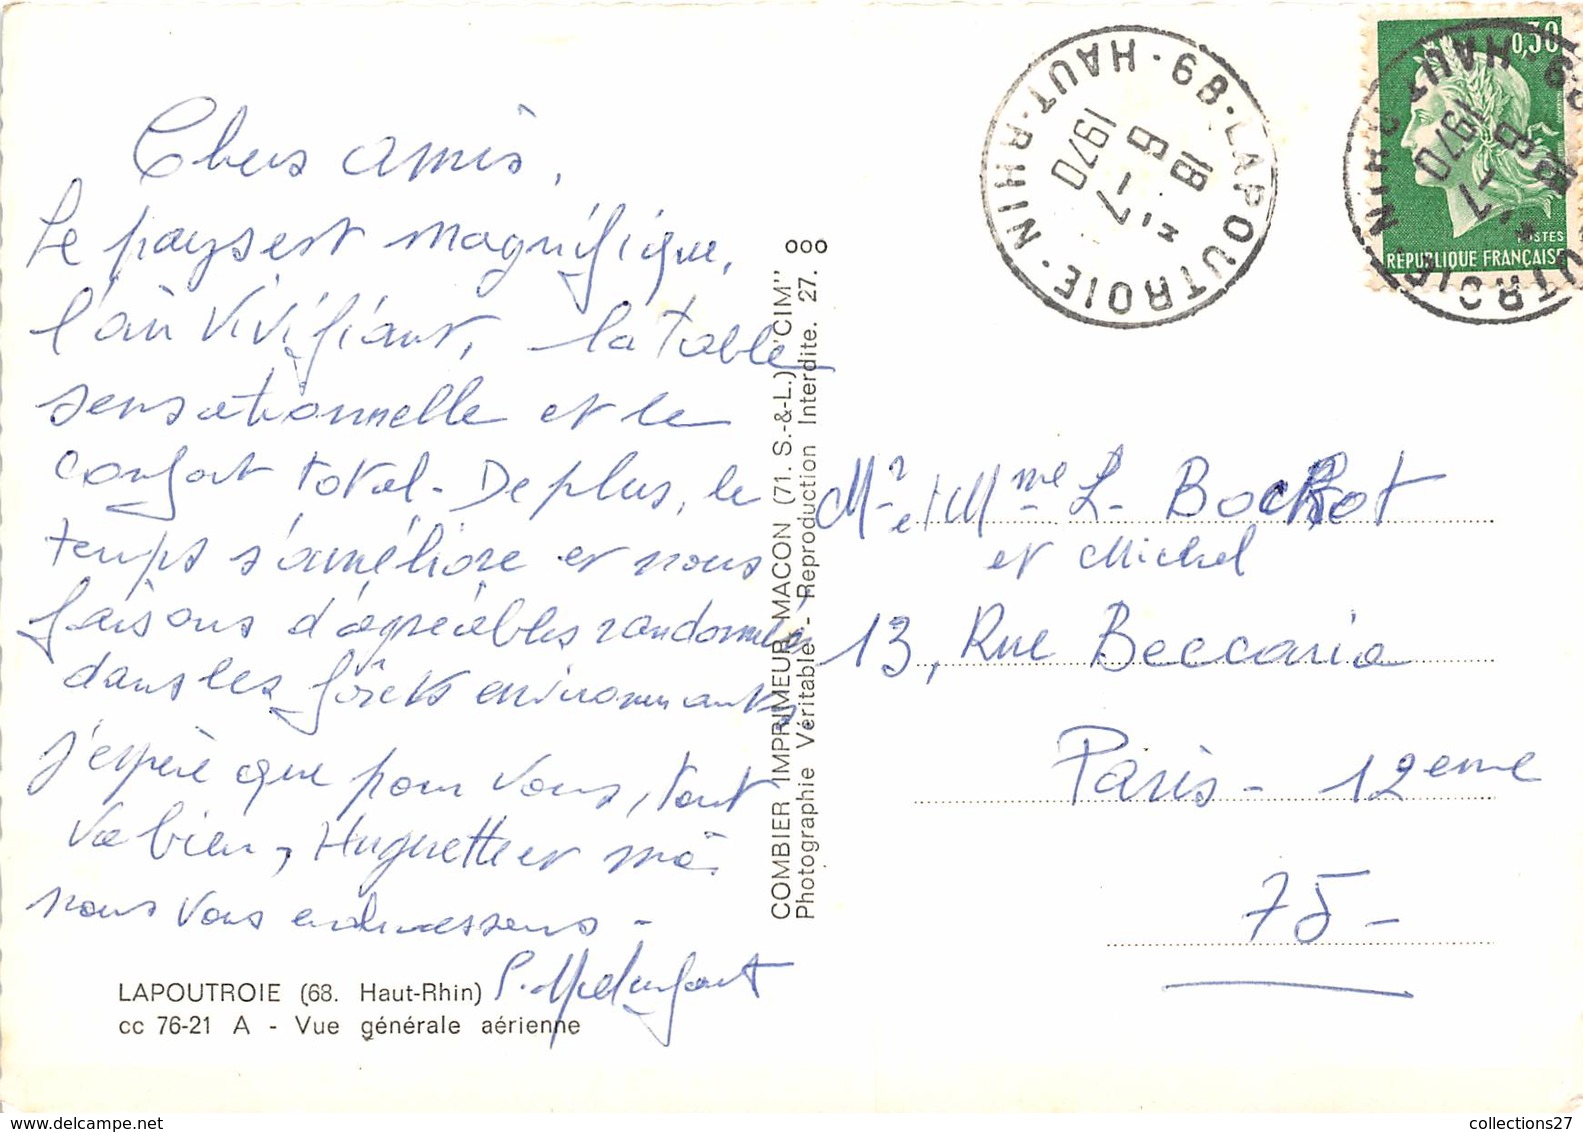 Chers amis,
Le pays est magnifique,
l'air vivifiant, la table
sensationnelle et le
confort total - De plus, le
temps s'améliore et nous
faisons d'agréables randonnées
dans les forêts environnantes
J'espère que pour vous, tout
va bien, Huguette et moi
nous vous embrassons -
LAPOUTROIE (68. Haut-Rhin)
cc 76-21 A - Vue générale aérienne
COMBIER IMPRIMEUR MACON (71. S.-&-L.) "CIM"
Photographie Véritable - Reproduction Interdite. 27. 000
68 · LAPOUTROIE · HAUT-RHIN
18 H
6 - 7
1970
0,30
POSTES
REPUBLIQUE FRANÇAISE
Mr et Mme L. Bockot
et Michel
13, Rue Beccaria
Paris - 12eme
75 -
collections27